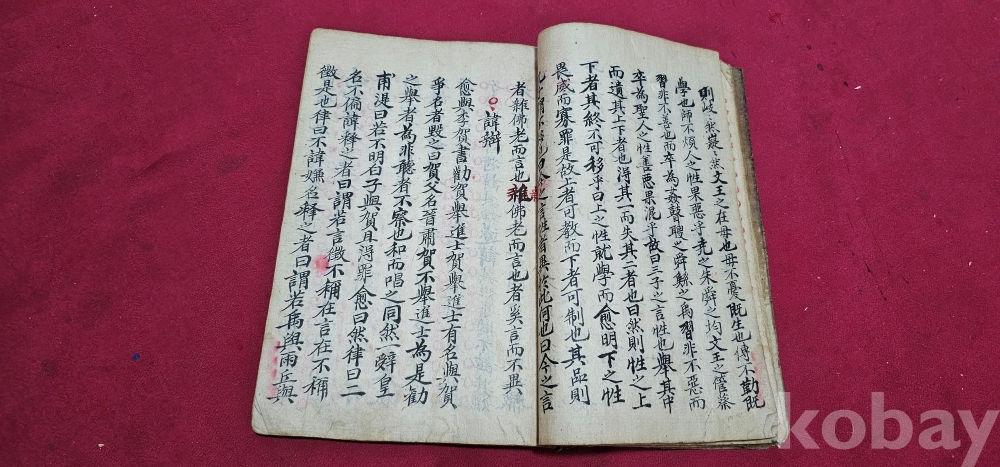 則岐〻然嶷〻然文王之在母也母不憂既生也傅不勤既
學也師不煩人之性果惡乎堯之朱舜之均文王之管蔡
習非不善也而卒為姦瞽瞍之舜鯀之禹習非不惡而
卒為聖人之性善惡果混乎故曰三子之言性也舉其中
而遺其上下者也得其一而失其二者也曰然則性之上
下者其終不可移乎曰上之性就學而愈明下之性
畏威而寡罪是故上者可教而下者可制也其品則
曰今之言性者異於此何也曰今之言
者雜佛老而言也雜佛老而言也者奚言而不異
諱辯
愈與李賀書勸賀舉進士賀舉進士有名與賀
爭名者毀之曰賀父名晉肅賀不舉進士為是勸
之舉者為非聽者不察也和而唱之同然一辭皇
甫湜曰若不明白子與賀且得罪愈曰然律曰二
名不偏諱釋之者曰謂若言徵不稱在言在不稱
徵是也律曰不諱嫌名釋之者曰謂若禹與雨丘與
kobay